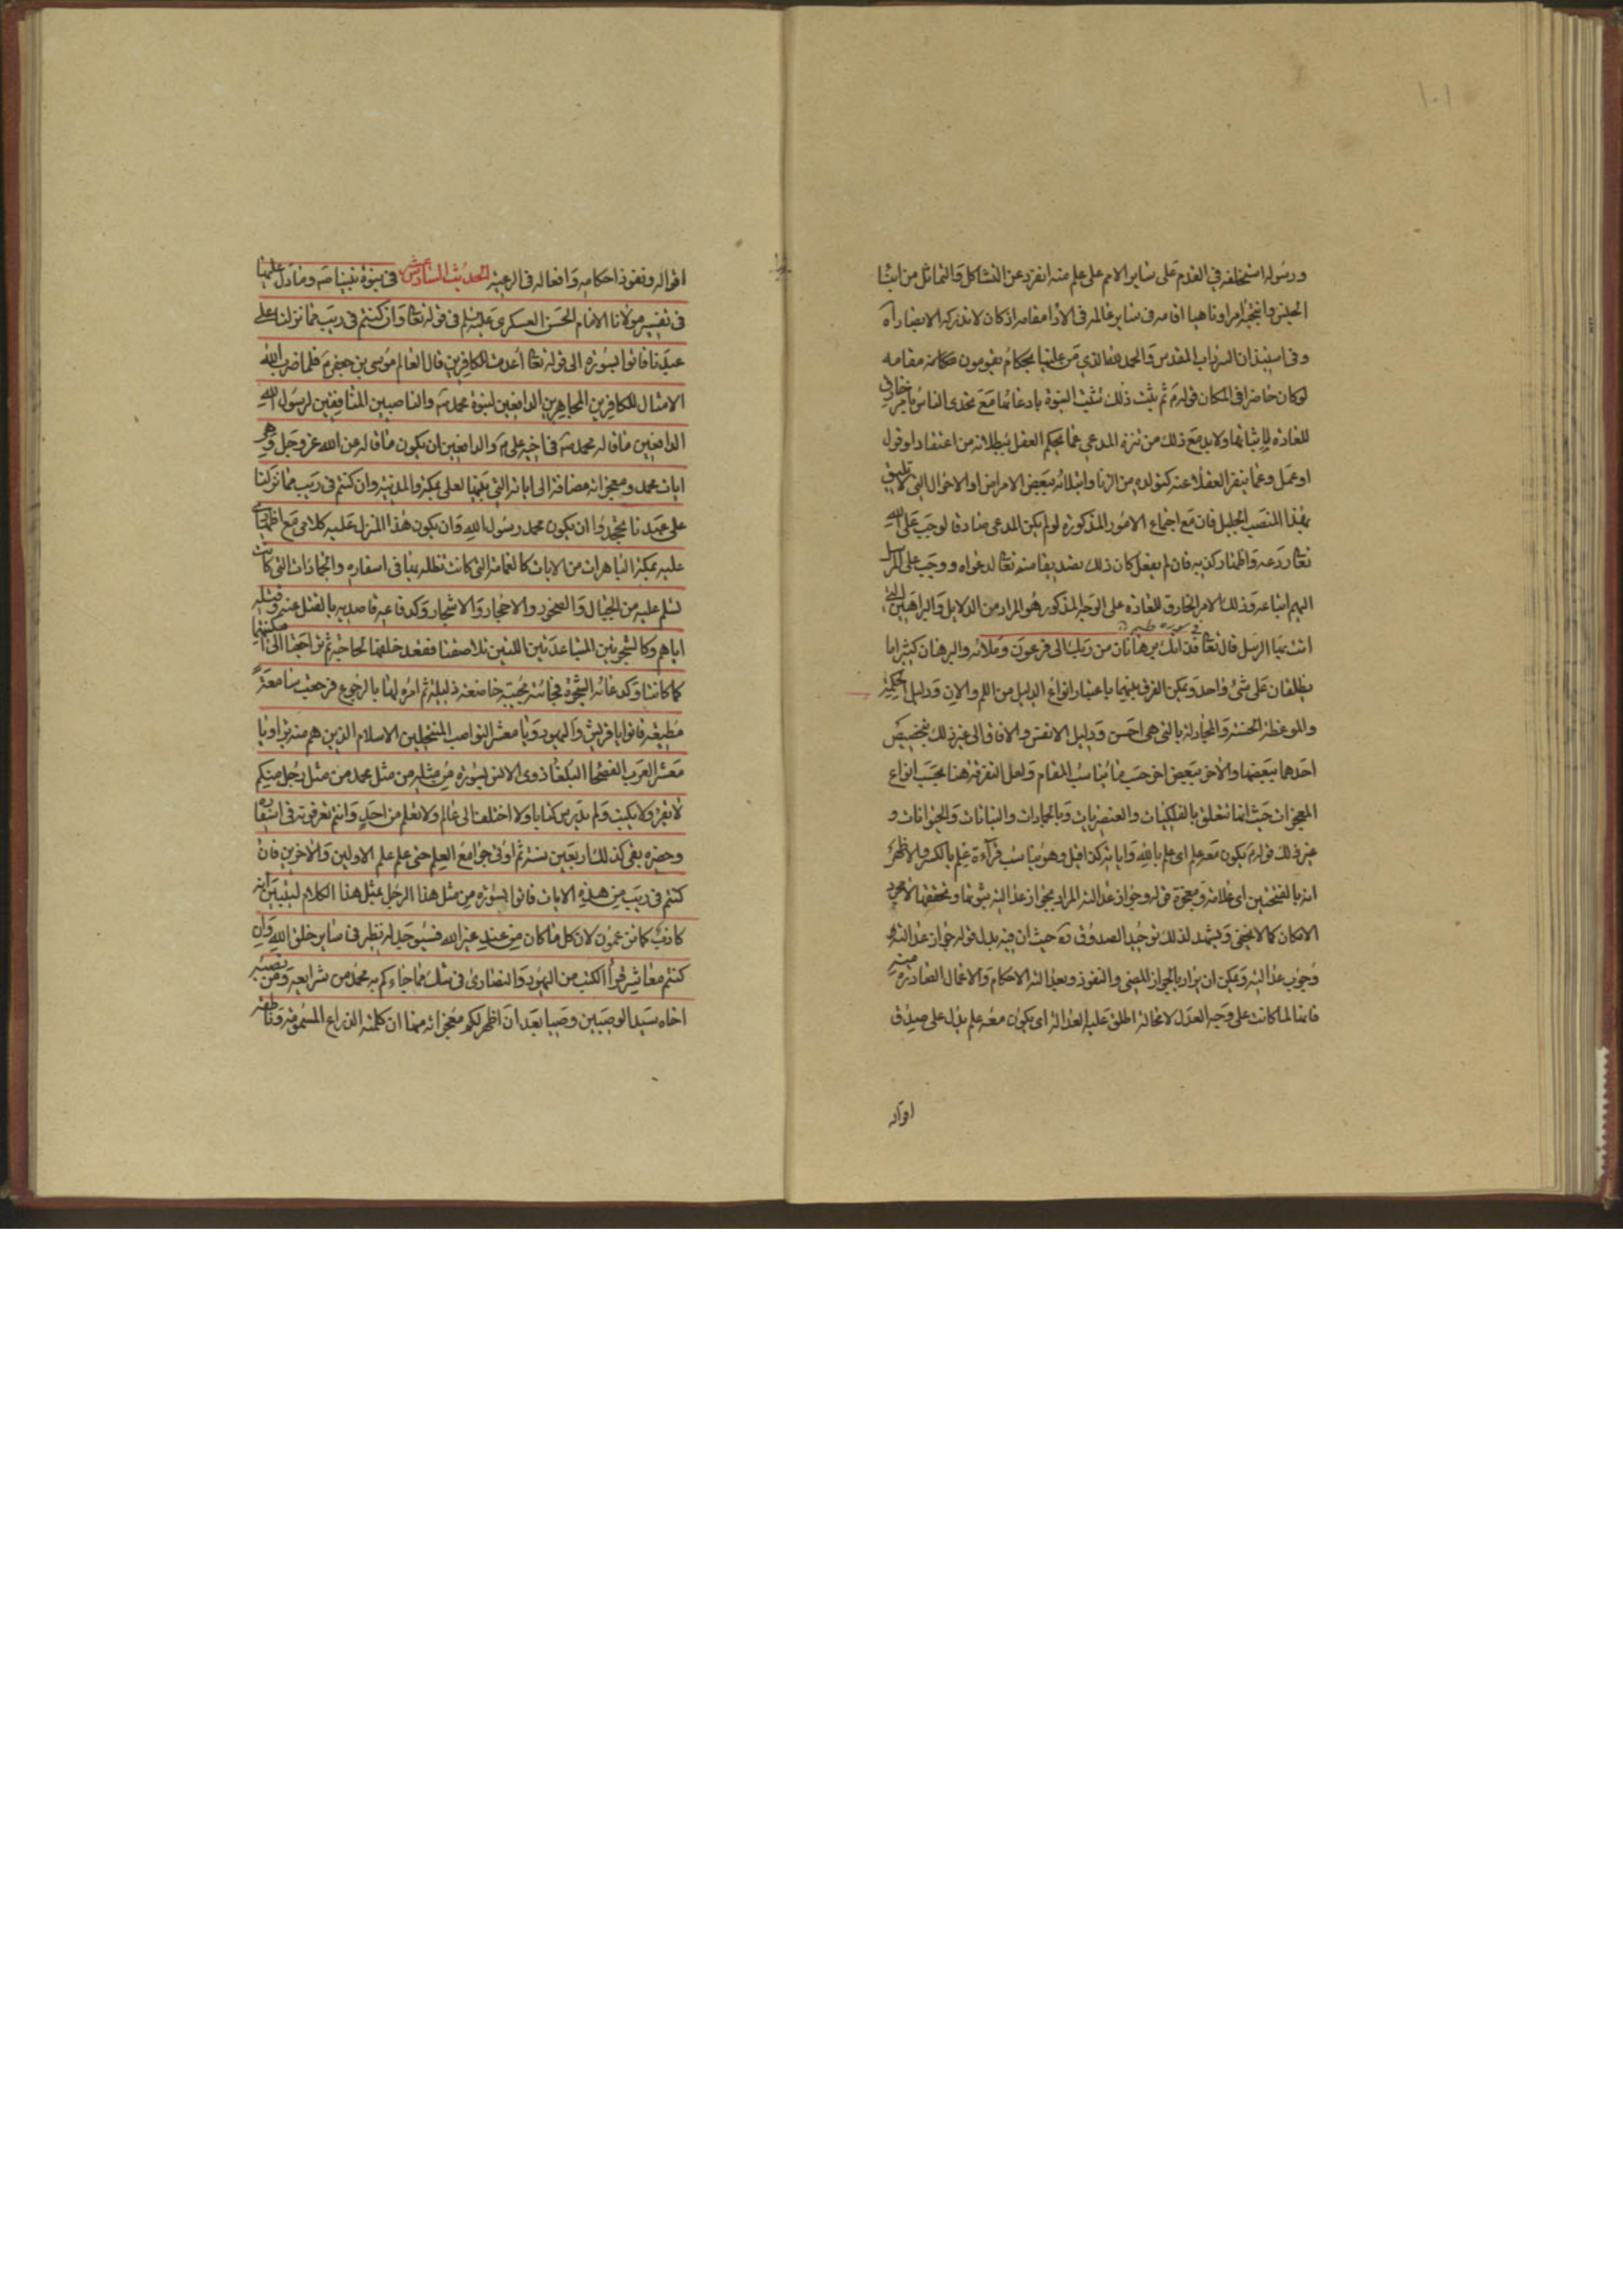 ١٠١
ورسوله استخلفه في القدم على سائر الامم على علم منه انفرد عن التشاكل والتماثل من ابناء
الجنس وانتجبه امرا وناهيا اقامه في سائر عالمه في الاداء مقامه اذ كان لا تدركه الابصار اه
وفي استيذان السرداب المقدس والحمد لله الذي من علينا بحكام يقومون مقامه
لو كان حاضرا في المكان قوله ثم يثبت ذلك تثبت النبوة بادعائها مع تحدى الناس بامر خارق
للعادة لاثباتها ولا بد مع ذلك من تنزه المدعي عما يحكم العقل ببطلانه من اعتقاد او قول
او عمل وعما ينفر العقلاء عنه كتولده من الزنا وابتلائه ببعض الامراض او الاحوال التي لا تليق
بهذا المنصب الجليل فان مع اجتماع الامور المذكورة لو لم يكن المدعى صادقا لوجب على الله
تعالى ردعه واظهار كذبه فان لم يفعل كان ذلك تصديقا منه تعالى لدعواه ووجب على المرسل
اليهم اتباعه وذلك الامر الخارق للعادة على الوجه المذكور هو المراد من الدلايل والبراهين التي
في سوره
اتت بها الرسل قال تعالى فذانك برهانان من ربك الى فرعون وملائه والبرهان كثيرا ما
يطلقان على شئ واحد ويمكن الفرق بينهما باعتبار انواع الدليل من اللم والان ودليل الحكمة
والموعظة الحسنة والمجادلة بالتي هي احسن ودليل الانفس والافاق الى غير ذلك بتخصيص
احدهما ببعضها والاخر ببعض اخر حسب ما يناسب المقام ولعل التفرقة هنا بحسب انواع
المعجزات حيث انها تتعلق بالفلكيات والعنصريات وبالجمادات والنباتات والحيوانات و
غير ذلك قوله يكون معه علم اى علم بالله واياته كذا قيل وهو يناسب قراءة علم بالكسر والاظهر
انه بالفتحتين اى علامة ومعجزة قوله وجواز عدالته المراد بجواز عدالته ثبوتها وتحققها لا مجرد
الامكان كما لا يخفى ويشهد لذلك توحيد الصدوق ره حيث ان فيه بدل قوله جواز عدالته
وجوب عدالته ويمكن ان يراد بالجواز المضى والنفوذ وبعدالته الاحكام والاعمال الصادرة منه
فانها لما كانت على وجه العدل لا محالة اطلق عليها العدالة اى يكون معه علم يدل على صدق
اقواله
اقواله ونفوذ احكامه وافعاله في الرعية الحديث السادس عشر في نبوة نبينا ص وما دل عليها
في تفسير مولانا الامام الحسن العسكري عليه السلم في قوله تعالى وان كنتم في ريب مما نزلنا على
عبدنا فاتوا بسورة الى قوله تعالى اعدت للكافرين قال العالم موسى بن جعفر ع فلما ضرب الله
الامثال للكافرين المجاهرين الدافعين لنبوة محمد ص والناصبين المنافقين لرسول الله
الدافعين ما قاله محمد ص في اخيه على ع والدافعين ان يكون ما قاله عن الله عز وجل وهى
ايات محمد ومعجزاته مضافة الى اياته التي بينها لعلى بمكة والمدينة وان كنتم في ريب مما نزلنا
على عبدنا تجحدوا ان يكون محمد رسول الله وان يكون هذا المنزل عليه كلامى مع اظهارى
عليه بمكة الباهرات من الايات كالغمامة التي كانت تظله بها في اسفاره والجمادات التي كانت
تسلم عليه من الجبال والصخور والاحجار والاشجار وكدفاعه قاصديه بالقتل عنه وقتله
اياهم وكالشجرتين المتباعدتين اللتين تلاصقتا فقعد خلفهما لحاجته ثم تراجعتا الى امكنتهما
كما كانتا وكدعائه الشجرة فجائته مجيبة خاضعة ذليلة ثم امره لها بالرجوع فرجعت سامعة
مطيعة فاتوا يا قريش واليهود ويا معشر النواصب المنتحلين الاسلام الذين هم منه براء ويا
معشر العرب الفصحاء البلغاء ذوى الالسن بسورة من مثله من مثل محمد من مثل رجل منكم
لا يقرء ولا يكتب ولم يدرس كتابا ولا اختلف الى عالم ولا تعلم من احد وانتم تعرفونه في اسفاره
وحضره بقى كذلك اربعين سنة ثم اوتى جوامع العلم حتى علم علم الاولين والاخرين فان
كنتم في ريب من هذه الايات فاتوا بسورة من مثل هذا الرجل بمثل هذا الكلام ليتبين انه
كاذب كما تزعمون لان كل ما كان من عند غير الله فسيوجد له نظير في سائر خلق الله وان
كنتم معاشر قراء الكتب من اليهود والنصارى في شك مما جاءكم به محمد من شرايعه ومن نصبه
اخاه سيد الوصيين وصيا بعد ان اظهر لكم معجزاته منها ان كلمته الذراع المسمومة وناطقه